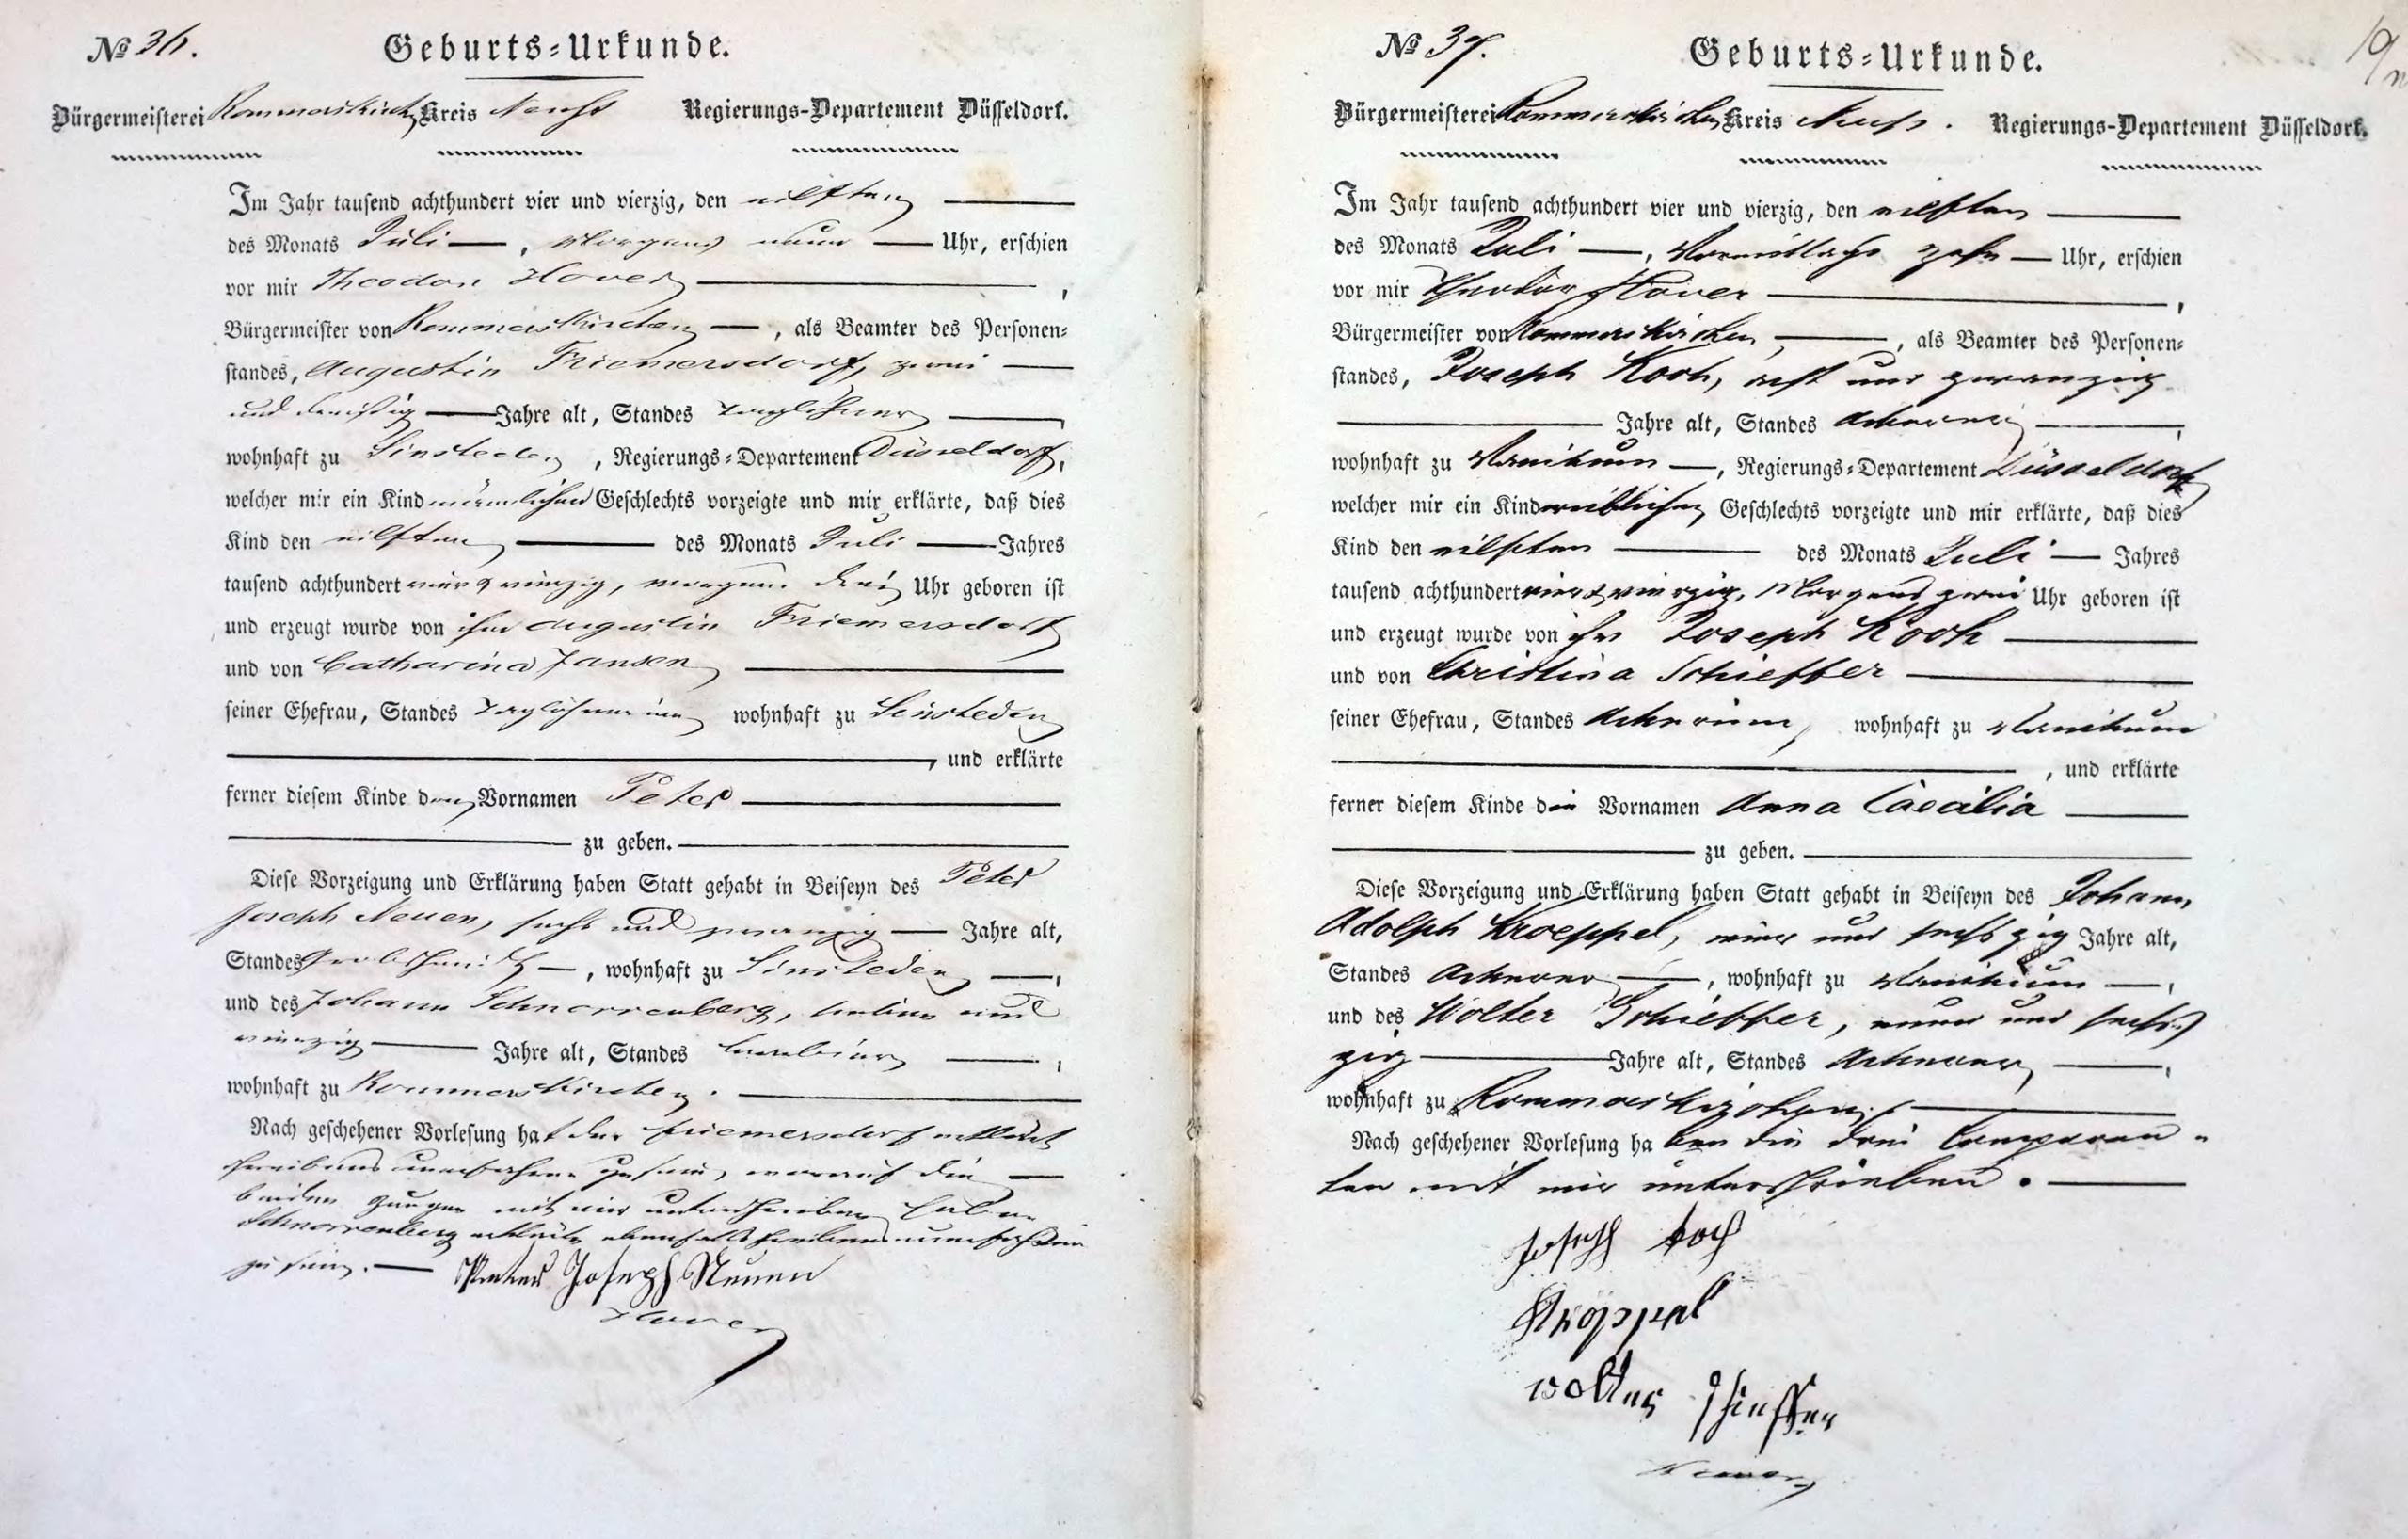 № 36.
Geburts-Urkunde.
Bürgermeisterei Rommerskirchen Kreis Neuss Regierungs-Departement Düsseldorf.
Im Jahr tausend achthundert vier und vierzig, den eilften
des Monats Juli, Morgens neun Uhr, erschien
vor mir Theodor Hover,
Bürgermeister von Rommerskirchen, als Beamter des Personen-
standes, Augustin Friemersdorf, zwei
und dreißig Jahre alt, Standes Taglöhner,
wohnhaft zu Sinsteden, Regierungs-Departement Düsseldorf,
welcher mir ein Kind männlichen Geschlechts vorzeigte und mir erklärte, daß dies
Kind den eilften des Monats Juli Jahres
tausend achthundert vier & vierzig, morgens drei Uhr geboren ist
und erzeugt wurde von ihm Augustin Friemersdorf
und von Catharina Jansen
seiner Ehefrau, Standes Taglöhnerinn wohnhaft zu Sinsteden
, und erklärte
ferner diesem Kinde den Vornamen Peter
zu geben.
Diese Vorzeigung und Erklärung haben Statt gehabt in Beiseyn des Peter
Joseph Neuen, sechs und zwanzig Jahre alt,
Standes Grobschmidt, wohnhaft zu Sinsteden,
und des Johann Schnorrenberg, sieben und
vierzig Jahre alt, Standes,
wohnhaft zu Rommerskirchen.
Nach geschehener Vorlesung hat der Friemersdorf erklärt
schreibens unerfahren zu sein, worauf die
beiden Zeugen mit mir unterschrieben haben
Schnorrenberg erklärte ebenfalls schreibens unerfahren
zu sein. Peter Joseph Neuen
Hover
№ 37.
Geburts-Urkunde.
19
Bürgermeisterei Rommerskirchen Kreis Neuss. Regierungs-Departement Düsseldorf.
Im Jahr tausend achthundert vier und vierzig, den eilften
des Monats Juli, Vormittags zehn Uhr, erschien
vor mir Theodor Hover,
Bürgermeister von Rommerskirchen, als Beamter des Personen-
standes, Joseph Koch, acht und zwanzig
Jahre alt, Standes Ackerer,
wohnhaft zu Vanikum, Regierungs-Departement Düsseldorf
welcher mir ein Kind weiblichen Geschlechts vorzeigte und mir erklärte, daß dies
Kind den eilften des Monats Juli Jahres
tausend achthundert vier & vierzig, Morgens zwei Uhr geboren ist
und erzeugt wurde von ihm Joseph Koch
und von Christina Schieffer
seiner Ehefrau, Standes Ackerinn, wohnhaft zu Vanikum
, und erklärte
ferner diesem Kinde die Vornamen Anna Caecilia
zu geben.
Diese Vorzeigung und Erklärung haben Statt gehabt in Beiseyn des Johann
Adolph Kroeppel, vier und sechszig Jahre alt,
Standes Ackerer, wohnhaft zu Vanikum,
und des Wolter Schieffer, neun und sechs-
zig Jahre alt, Standes Ackerer,
wohnhaft zu Rommerskirchen,
Nach geschehener Vorlesung haben die drei Comparen-
ten mit mir unterschrieben.
Joseph Koch
Kröppel
Wolter Schieffer
Hover